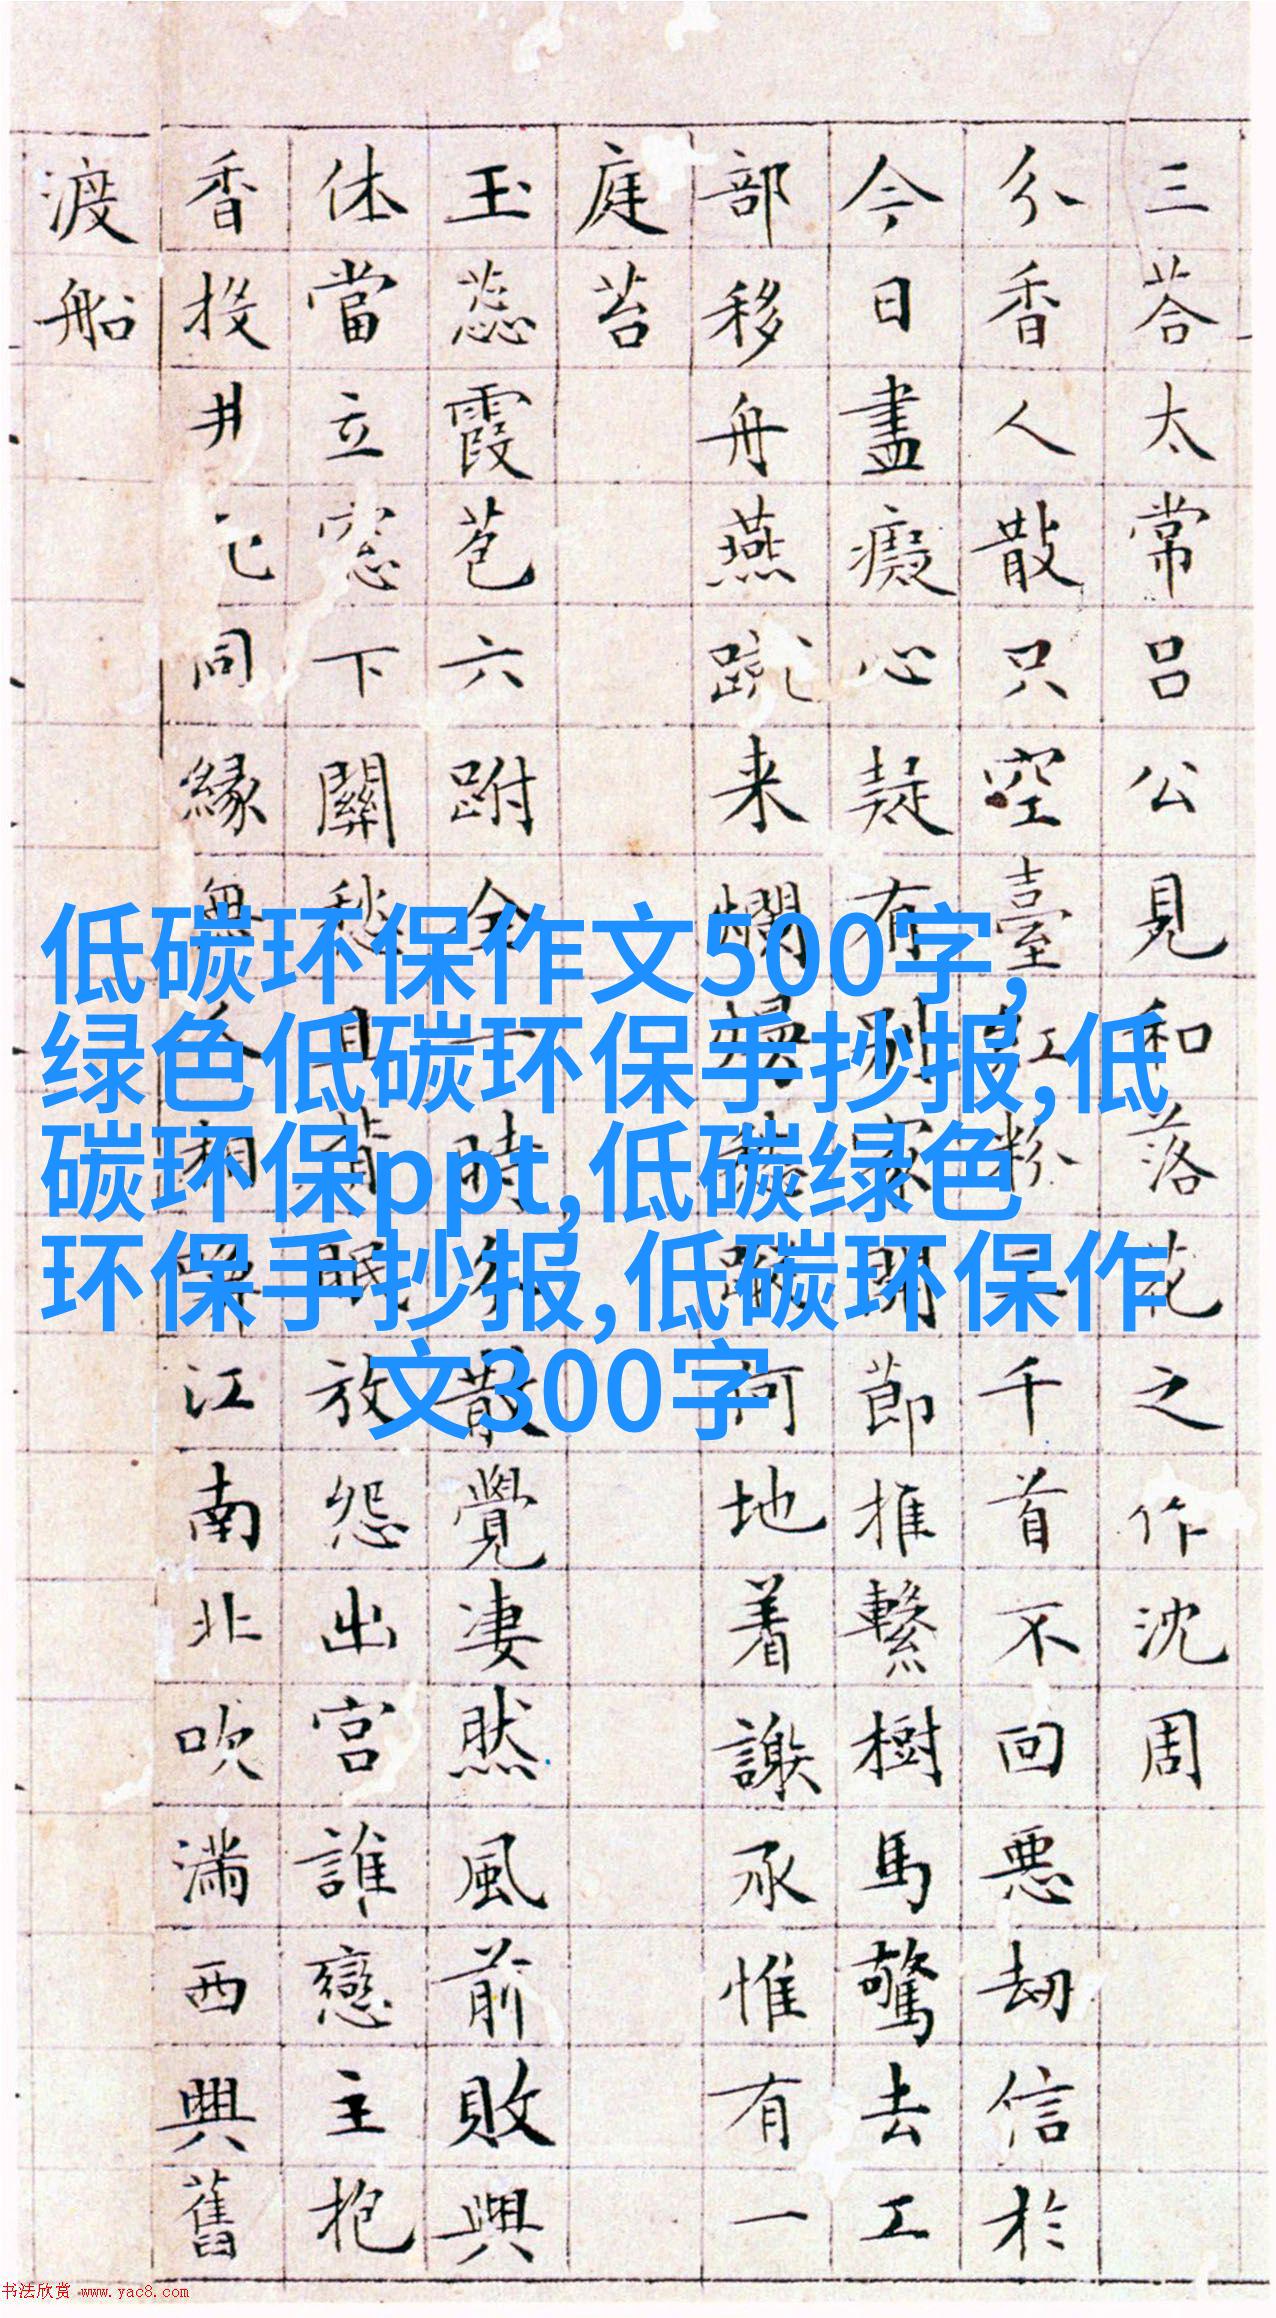 三荅太常吕公見和落花之作沈周
分香人散只空臺紅粉三千首不回悪劫信於
今日盡癡心疑有别家開節推繫樹馬驚去工
部移舟燕蹴来爛熳何地着謝承惟有一
庭苔
玉蕊霞苞六跗全一時分散覺凄然風前敗興
休當立窓下關愁且背眠放怨出宫誰戀主抱
香投井同縁無人相喚江南北吹滿西興舊
渡船
低碳环保作文500字,
绿色低碳环保手抄报,低
碳环保ppt,低碳绿色
环保手抄报,低碳环保作
文300字
书法欣赏 www.yac8.com